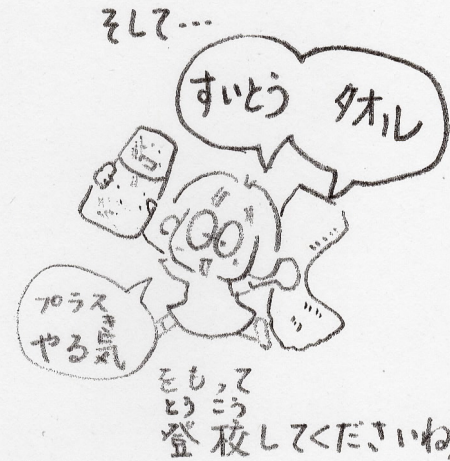 そして…
すいとう タオル
プラス
やる気
をもって
とうこう
登校してくださいね